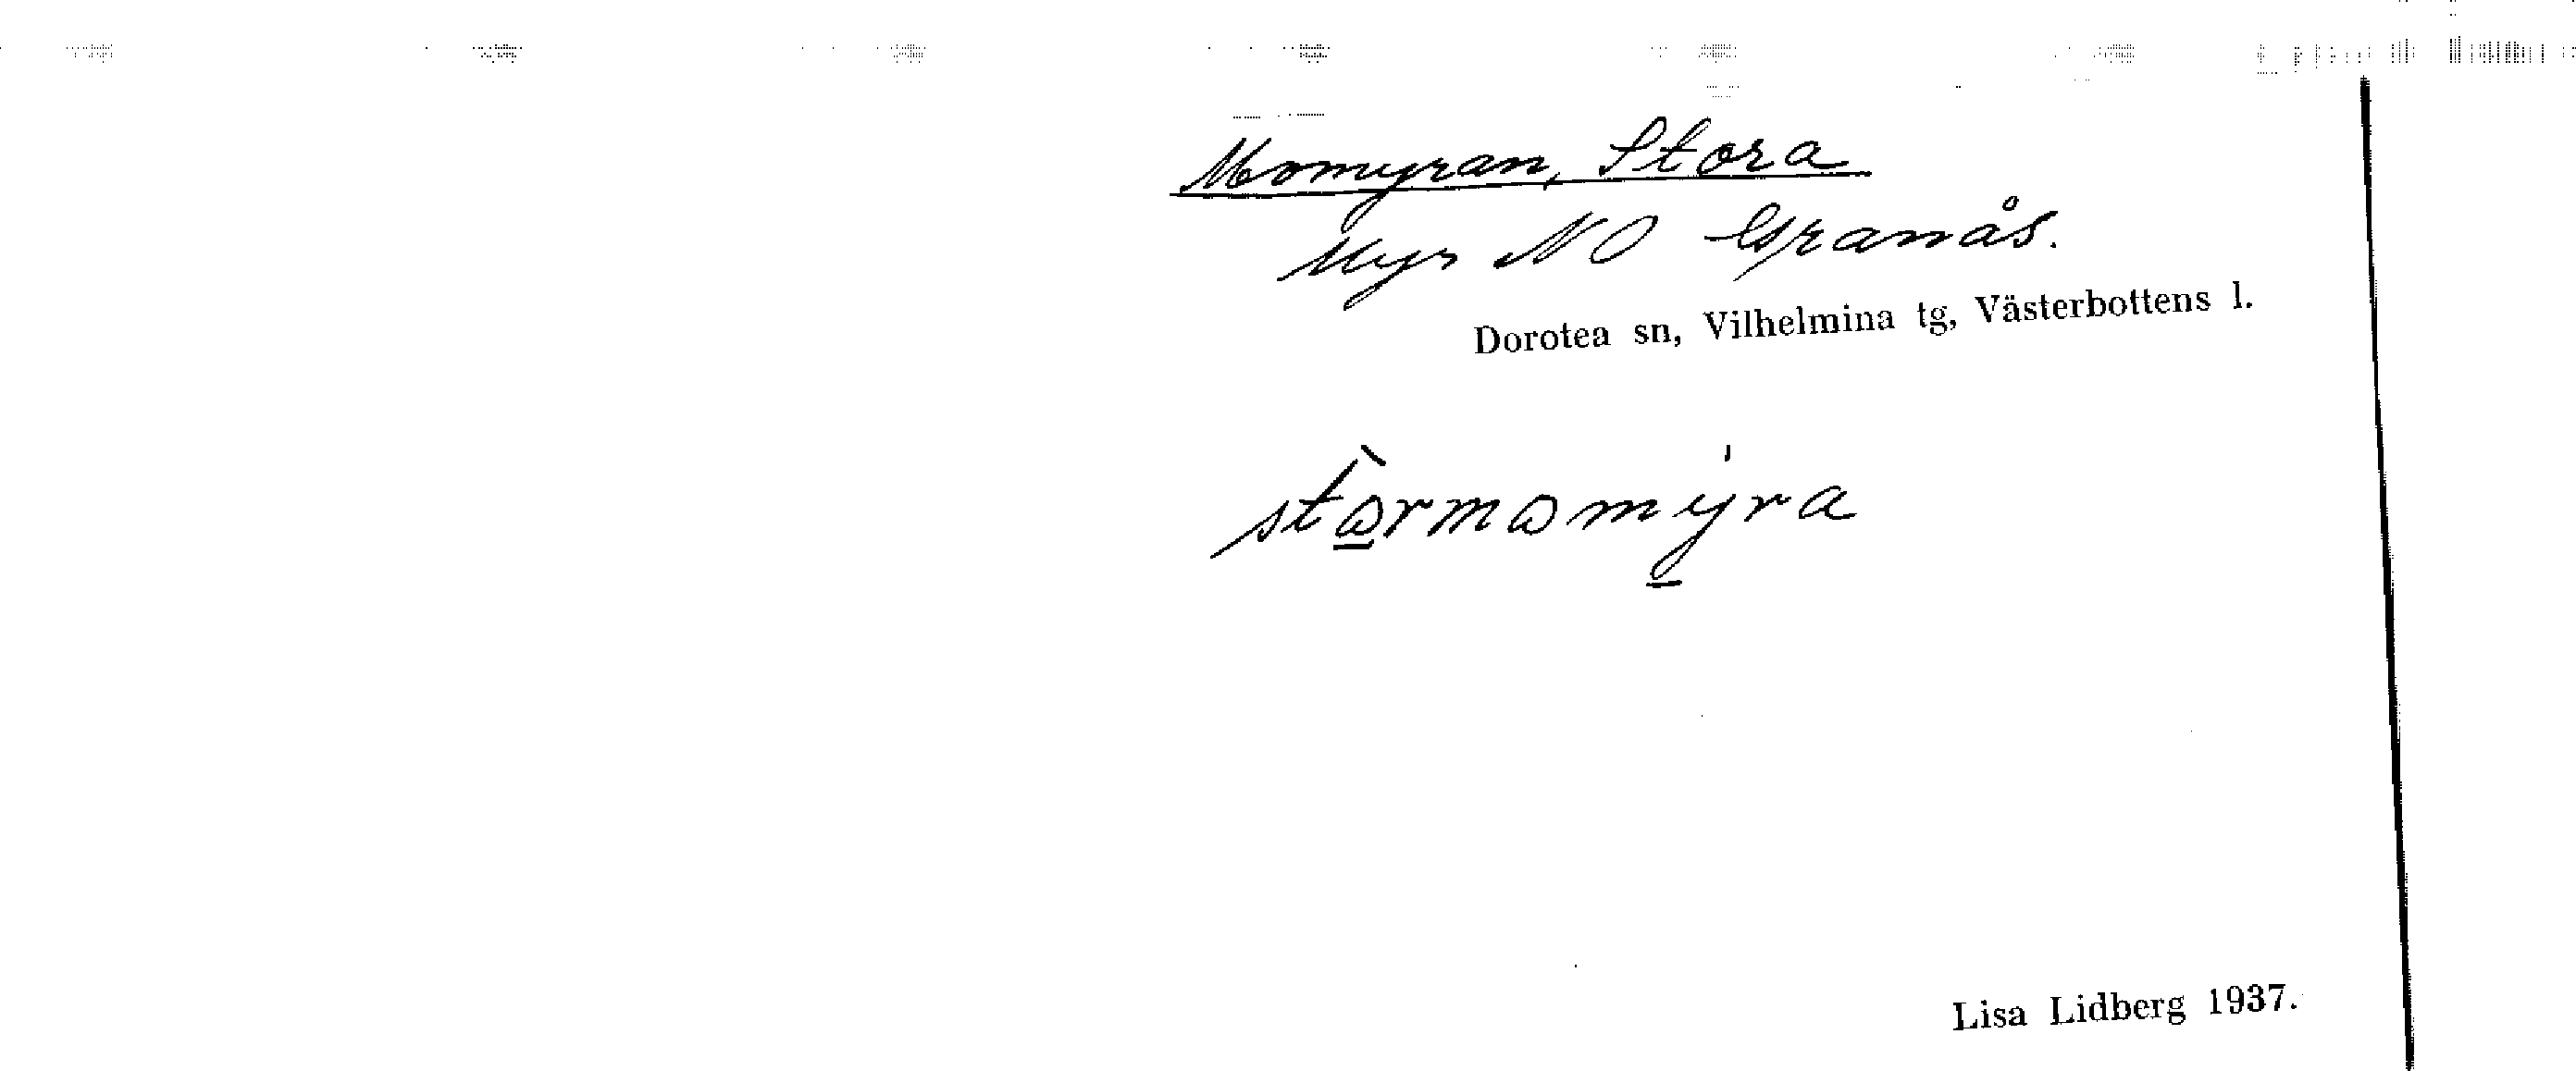 Momyran, Stora
Myr NO Granås.
Dorotea sn, Vilhelmina tg, Västerbottens l.
stɷ̀rmɷmýra
Lisa Lidberg 1937.